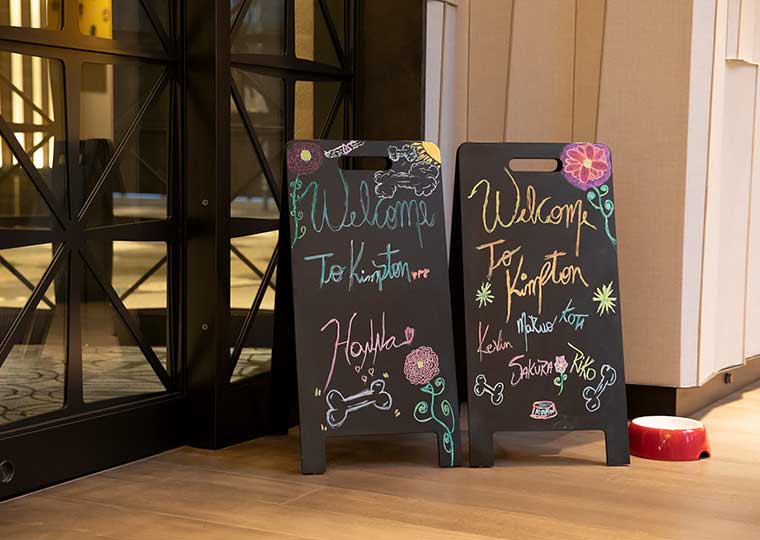 Welcome
To Kimpton
Hanna
Welcome
To
Kimpton
Kevin Maruo Kota
SAKURA RIKO